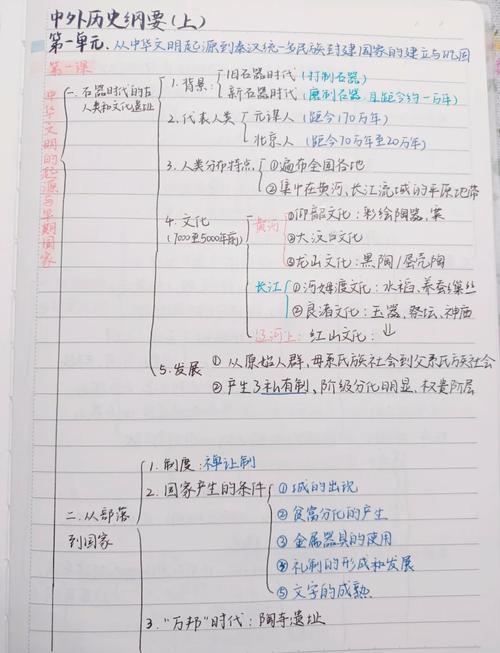 中外历史纲要(上)
第一单元.从中华文明起源到秦汉统一多民族封建国家的建立与巩固
第一课
中华文明的起源与早期国家
一.石器时代的古人类和文化遗址
1.背景:
旧石器时代(打制石器)
新石器时代(磨制石器 且距今约一万年)
2.代表人类
元谋人(距今170万年)
北京人(距今70万年至20万年)
3.人类分布特点
①遍布全国各地
②集中在黄河、长江流域的平原地带
4.文化
(7000至5000年前)
黄河
①仰韶文化:彩绘陶器,粟
②大汶口文化
③龙山文化:黑陶/蛋壳陶
长江
①河姆渡文化:水稻、养蚕缫丝
②良渚文化:玉器、祭坛、神庙
辽河上:红山文化:↓
5.发展
①从原始人群,母系氏族社会到父系氏族社会
②产生了私有制,阶级分化明显,权贵阶层
二.从部落到国家
1.制度:禅让制
2.国家产生的条件
①城的出现
②贫富分化的产生
③金属器具的使用
④礼制的形成和发展
⑤文字的成熟
3."万邦"时代:陶寺遗址